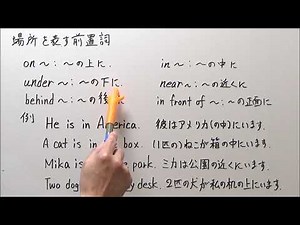 場所を表す前置詞
on ~：~の上に. in ~：~の中に
under ~：~の下に. near ~：~の近くに
behind ~：~の後に in front of ~：~の正面に
例 He is in America. 彼はアメリカ(の中)にいます.
A cat is in box. (1匹の)ねこが箱の中にいます.
Mika is the park. ミカは公園の近くにいます.
Two dog my desk. 2匹の犬が私の机の上にいます.